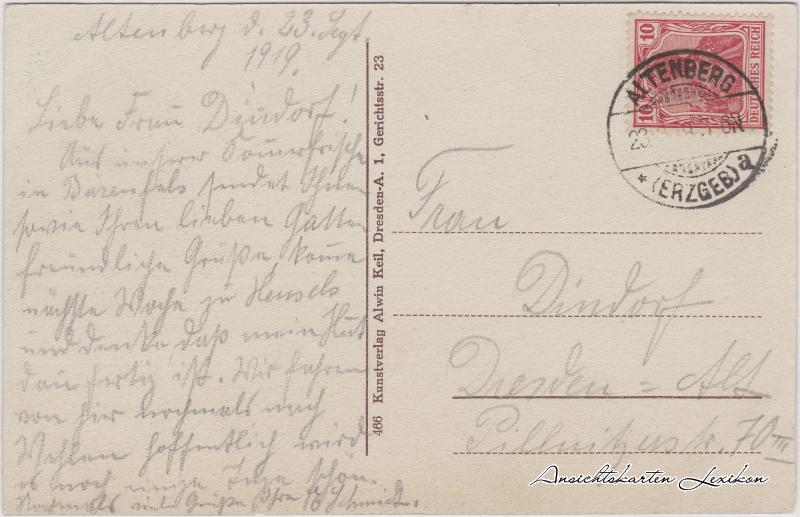 Altenberg d. 23. Sept
1919.
Liebe Frau Dindorf!
Aus unserer Sommerfrische
in Bärenfels sendet Ihnen
sowie Ihren lieben Gatten
freundliche Grüße, komme
nächste Woche zu Hensels
und denke daß mein Hut
dan fertig ist. Wir fahren
von hier nochmals nach
Wehlen hoffentlich wird
es noch einige Tage schön.
Nochmals viele Grüße Ihre Schmidt.
466 Kunstverlag Alwin Keil, Dresden-A. 1, Gerichtsstr. 23
10 10
DEUTSCHES REICH
ALTENBERG
23.
* (ERZGEB) a
Frau
Dindorf
Dresden = Alt
Pillnitzerstr. 70 III
Ansichtskarten Lexikon